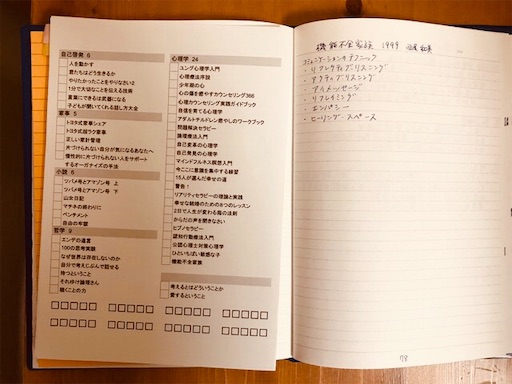 自己啓発 6
人を動かす
君たちはどう生きるか
やりたかったことをやりなさい2
1分で大切なことを伝える技術
言葉にできるは武器になる
子どもが聞いてくれる話し方大全
家事 5
トヨタ式家事シェア
トヨタ式超ラク家事
正しい家計管理
片づけられない自分が気になるあなたへ
慢性的に片づけられない人をサポート
するオーガナイズの手法
小説 6
ツバメ号とアマゾン号 上
ツバメ号とアマゾン号 下
山女日記
マチネの終わりに
ペンチメント
自由の牢獄
哲学 9
エンデの遺言
100の思考実験
なぜ世界は存在しないのか
自分で考えじぶんで話せる
待つということ
それゆけ論理さん
聴くことの力
心理学 24
ユング心理学入門
心理療法序説
少年期の心
心の傷を癒やすカウンセリング366
心理カウンセリング実践ガイドブック
自信を育てる心理学
アダルトチルドレン癒やしのワークブック
問題解決セラピー
論理療法入門
自己変革の心理学
自己発見の心理学
マインドフルネス瞑想入門
今ここに意識を集中する練習
15人が選んだ幸せの道
警告!
リアリティセラピーの理論と実践
幸せな結婚のための8つのレッスン
2日で人生が変わる箱の法則
からだの声を聞きなさい
ヒプノセラピー
認知行動療法入門
公認心理士対策心理学
ひといちばい敏感な子
機能不全家族
考えるとはどういうことか
愛するということ
機能不全家族 1999
コミュニケーションのテクニック
・リフレクティブリスニング
・アクティブリスニング
・アイメッセージ
・リフレイミング
・エンパシー
・ヒーリング・スペース
78